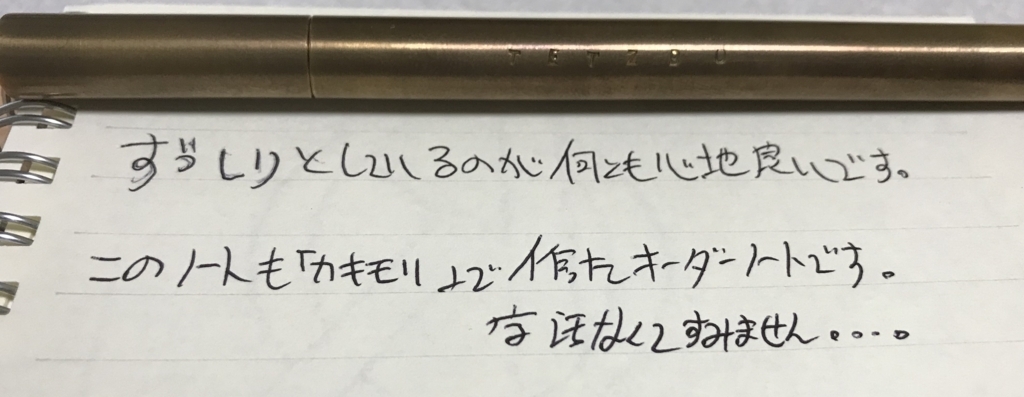 TETZBO
ずっしりとしているのが何とも心地良いです。
このノートも「カキモリ」で作ったオーダーノートです。
字汚なくてすみません....